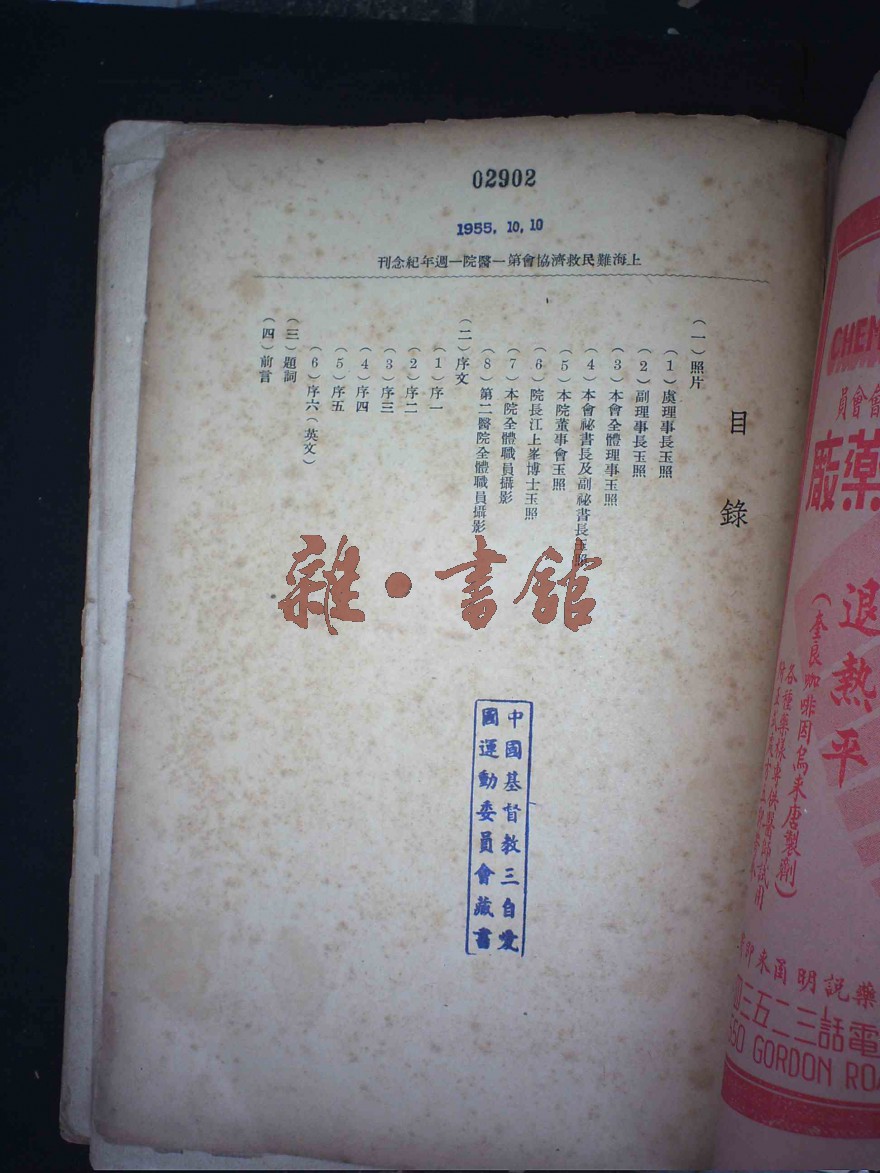 02902
1955. 10. 10
上海難民救濟協會第一醫院一週年紀念刊
目錄
(一)照片
(1)虞理事長玉照
(2)副理事長玉照
(3)本會全體理事玉照
(4)本會祕書長及副祕書長玉照
(5)本院董事會玉照
(6)院長江上峯博士玉照
(7)本院全體職員攝影
(8)第二醫院全體職員攝影
(二)序文
(1)序一
(2)序二
(3)序三
(4)序四
(5)序五
(6)序六(英文)
(三)題詞
(四)前言
雜·書館
中國基督教三自愛
國運動委員會藏書
CHEM
會會員
藥廠
退熱平
(奎良咖啡因烏來唐製劑)
各種藥樣專供醫師試用
藥說明函來即
電話三二五三四
550 GORDON ROA